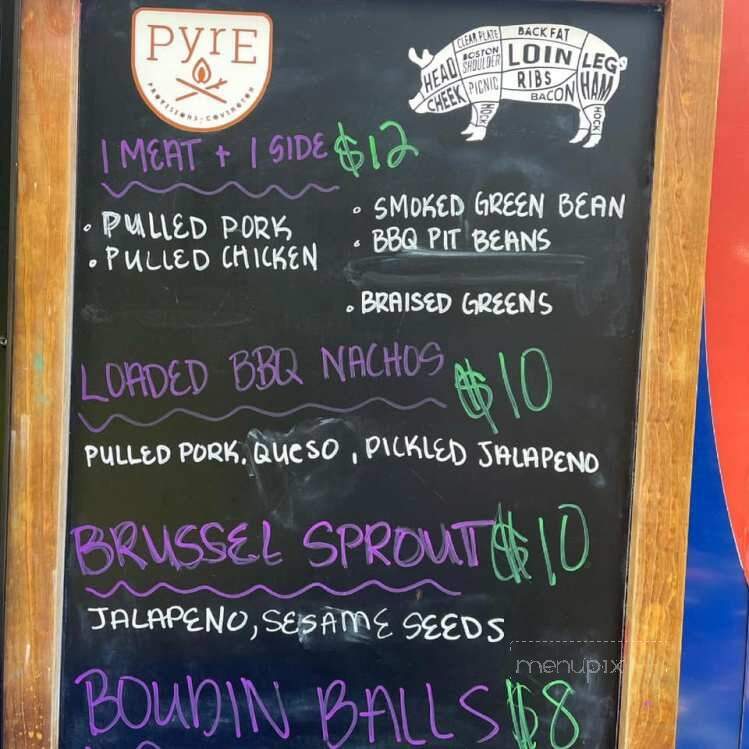 PYrE
PROVISIONS, COVINGTON
CLEAR PLATE
BACK FAT
BOSTON SHOULDER
LOIN
LEG
HEAD
HAM
RIBS
PICNIC
CHEEK
BACON
HOCK
HOCK
1 MEAT + 1 SIDE $12
• PULLED PORK
• PULLED CHICKEN
• SMOKED GREEN BEAN
• BBQ PIT BEANS
• BRAISED GREENS
LOADED BBQ NACHOS $10
PULLED PORK, QUESO, PICKLED JALAPENO
BRUSSEL SPROUT $10
JALAPENO, SESAME SEEDS
menupix
BOUDIN BALLS $8